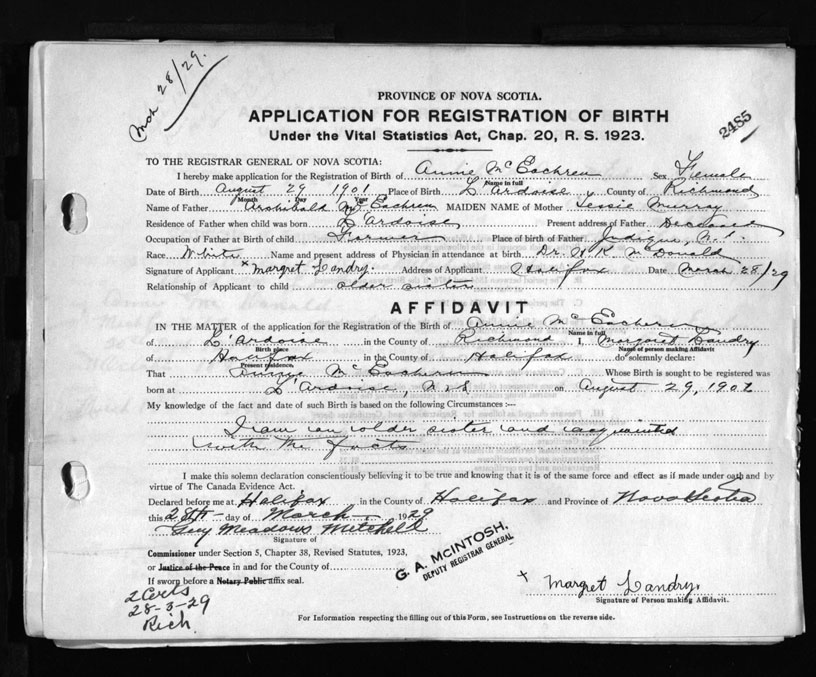 Mch 28/29.
PROVINCE OF NOVA SCOTIA.
APPLICATION FOR REGISTRATION OF BIRTH
Under the Vital Statistics Act, Chap. 20, R. S. 1923.
2485
TO THE REGISTRAR GENERAL OF NOVA SCOTIA:
I hereby make application for the Registration of Birth of Annie McEachren Sex Female
Name in full
Date of Birth August 29 1901 Place of Birth L'Ardoise County of Richmond
Month Day Year
Name of Father Archibald McEachren MAIDEN NAME of Mother Jessie Murray
Residence of Father when child was born L'Ardoise Present address of Father Deceased
Occupation of Father at Birth of child Farmer Place of birth of Father Judique, N.S.
Race White Name and present address of Physician in attendance at birth Dr. McDonald
Signature of Applicant x Margret Landry. Address of Applicant Halifax Date March 28/29
Relationship of Applicant to child older sister
AFFIDAVIT
IN THE MATTER of the application for the Registration of the Birth of Annie McEachern
Name in full
of L'Ardoise in the County of Richmond I, Margaret Landry
Birth place Name of person making Affidavit
of Halifax in the County of Halifax do solemnly declare:
Present residence,
That Annie McEachern Whose Birth is sought to be registered was
born at L'Ardoise, N.S on August 29, 1901
My knowledge of the fact and date of such Birth is based on the following Circumstances :—
I am an older sister and acquainted
with the facts
I make this solemn declaration conscientiously believing it to be true and knowing that it is of the same force and effect as if made under oath and by
virtue of The Canada Evidence Act.
Declared before me at Halifax in the County of Halifax and Province of Nova Scotia
this 28th day of March 1929
Guy Meadows Mitchell
Signature of
Commissioner under Section 5, Chapter 38, Revised Statutes, 1923,
or Justice of the Peace in and for the County of
If sworn before a Notary Public affix seal.
G. A. McINTOSH,
DEPUTY REGISTRAR GENERAL
x Margret Landry.
Signature of Person making Affidavit.
2 Certs
28-3-29
Rich.
For Information respecting the filling out of this Form, see Instructions on the reverse side.